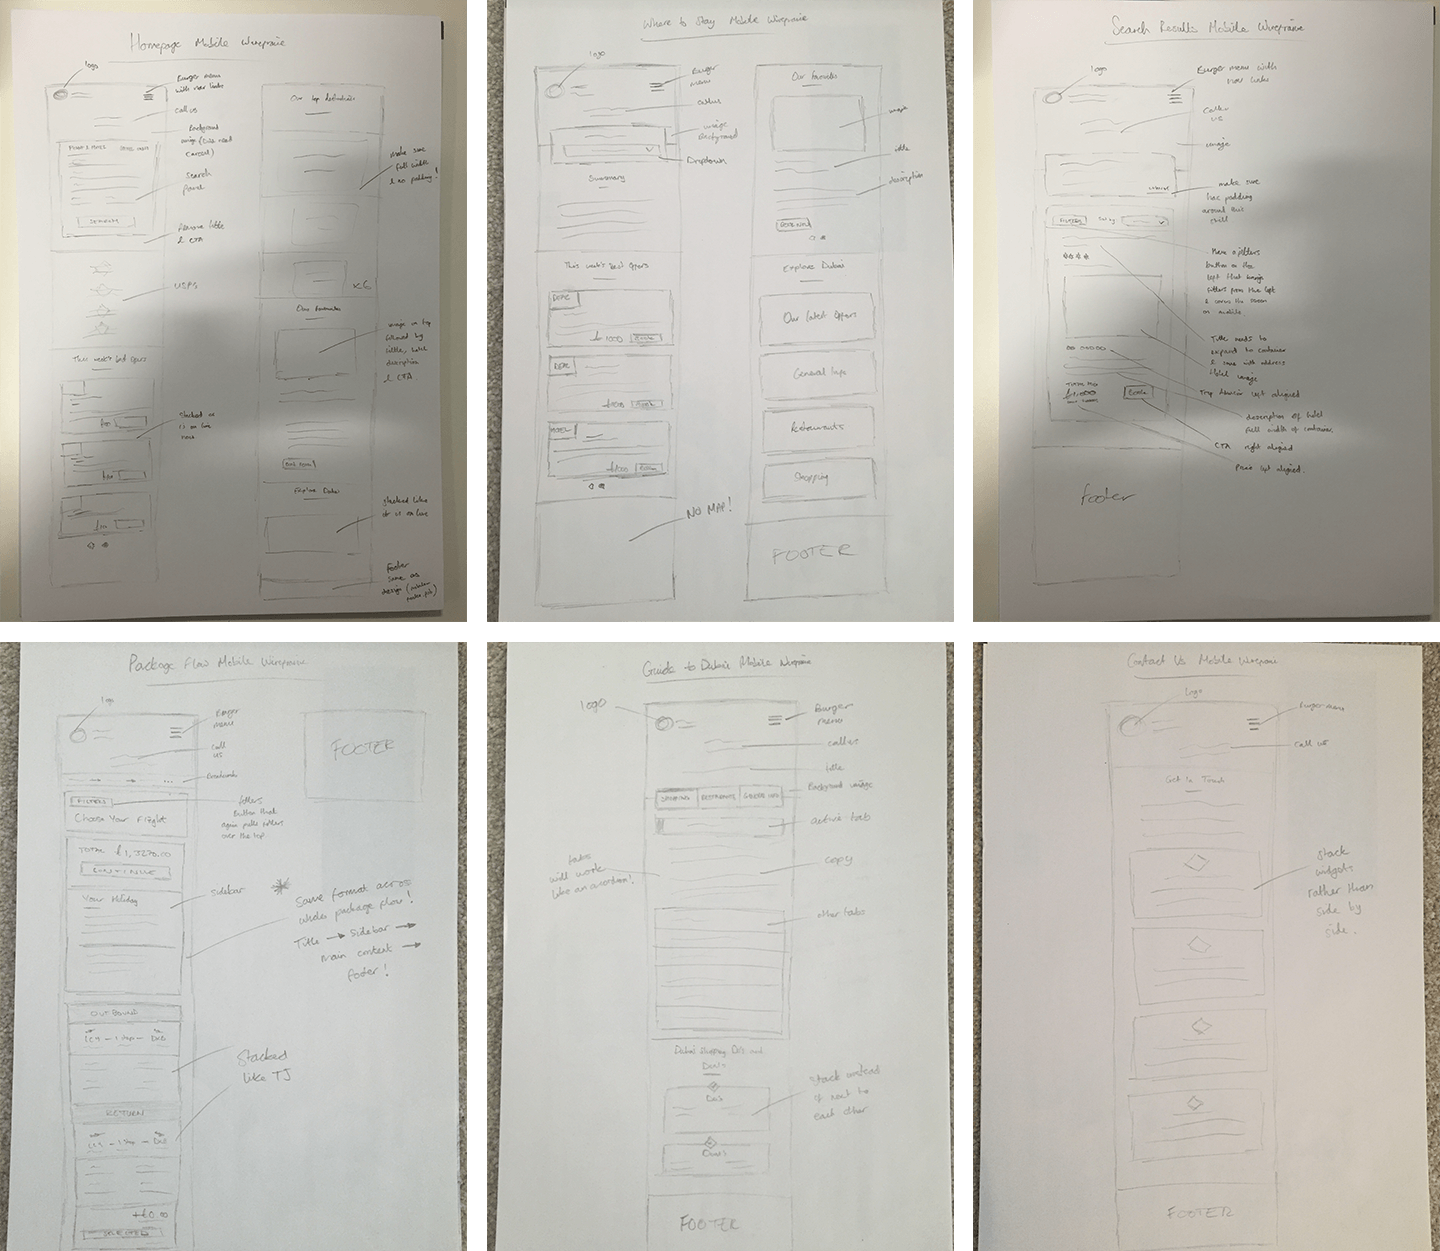 Homepage Mobile Wireframe
logo
Burger menu
with nav links
call us
Background
Search
panel
Remove title
& CTA
USPS
This week's best offers
Stacked as
is on live
now
Our top destinations
make sure
full width
& no padding!
x6
Our favourites
image on top
followed by
title, hotel
description
& CTA.
Explore Dubai
stacked like
it is on live
Footer
same as
design
Where to Stay Mobile Wireframe
logo
Burger
menu
callus
image
Background
Dropdown
Summary
This week's best offers
DEAL
£1000
BOOK
DEAL
DEAL
£1000
BOOK
NO MAP!
Our favourites
image
title
description
BOOK NOW
Explore Dubai
Our latest offers
General info
Restaurants
Shopping
FOOTER
Search Results Mobile Wireframe
logo
Burger menu with
nav links
Call us
image
make sure
has padding
around this
still
FILTERS
Have a filters
button on the
left that brings
filters from the left
& covers the screen
on mobile.
Title needs to
expand to container
& same with address
Hotel image
Trip Advisor left aligned
description of hotel
full width of container.
CTA right aligned
Price left aligned.
£1,000
BOOK
footer
Package Flow Mobile Wireframe
logo
Burger
menu
call
us
Breadcrumbs
FILTERS
Choose Your Flight
filters
button that
again pulls filters
over the top
TOTAL £1,3270.00
CONTINUE
Your Holiday
sidebar
Same format across
whole package flow!
Title → sidebar →
main content →
footer!
OUTBOUND
LCY - 1 stop - DXB
Stacked
like TJ
RETURN
LCY - 1 stop - DXB
+£0.00
SELECTED
FOOTER
Guide to Dubai Mobile Wireframe
logo
Burger
menu
callus
title
SHOPPING RESTAURANTS GENERAL INFO
Background image
active tab
tabs
will work
like an accordion!
copy
other tabs
Dubai Shopping Do's and
Dont's
Do's
Stack instead
of next to
each other
Dont's
FOOTER
Contact Us Mobile Wireframe
logo
Burger menu
call us
Get in Touch
Stack
widgets
rather than
side by
side.
FOOTER